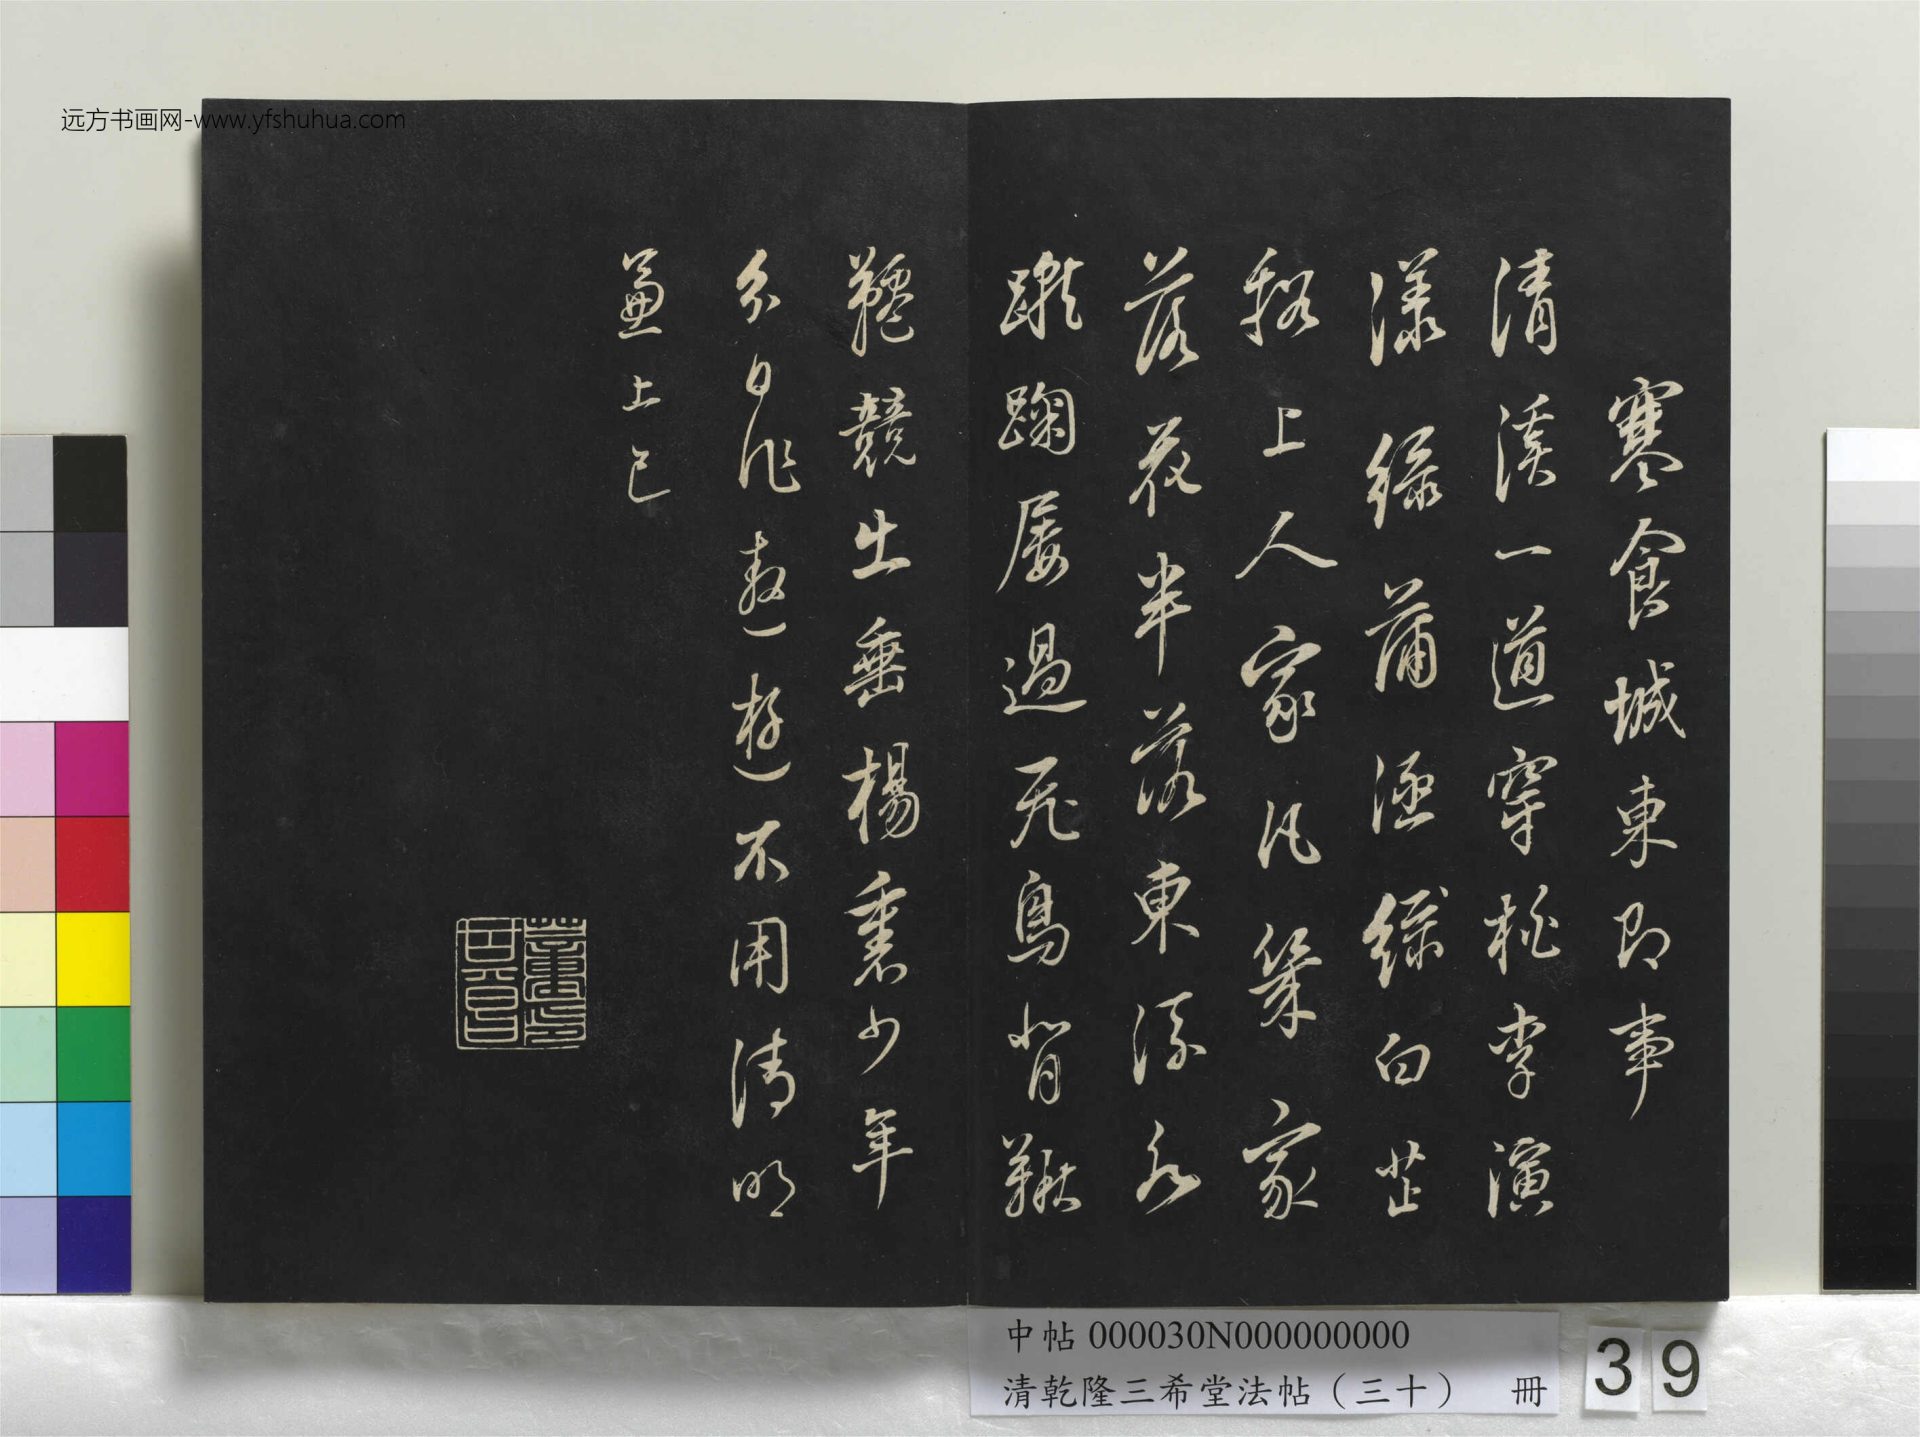 远方书画网-www.yfshuhua.com
寒食城東即事
清溪一道穿桃李演
漾綠蒲涵綠白芷
谿上人家凡幾家
落花半落東流水
蹴踘屢過飛鳥背鞦
韆競出垂楊裏少年
分日作遨遊不用清明
兼上巳
董其昌印
中帖 000030N000000000
清乾隆三希堂法帖（三十） 冊
39